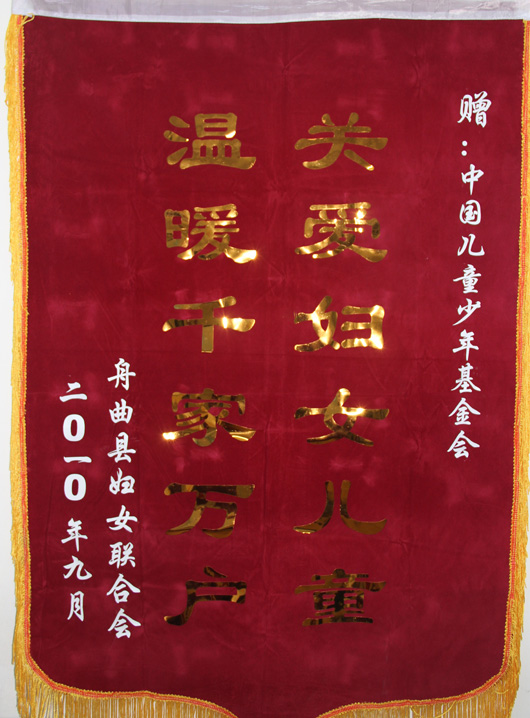 赠：中国儿童少年基金会
关爱妇女儿童
温暖千家万户
舟曲县妇女联合会
二0一0年九月